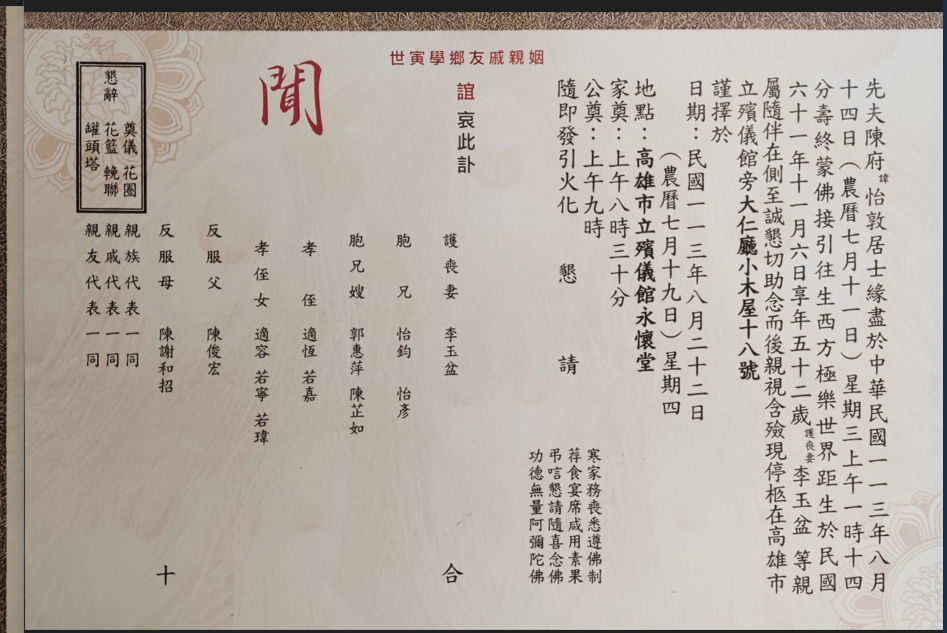 先夫陳府諱怡敦居士緣盡於中華民國一一三年八月
十四日（農曆七月十一日）星期三上午一時十四
分壽終蒙佛接引往生西方極樂世界距生於民國
六十一年十一月六日享年五十二歲護喪妻李玉盆 等親
屬隨伴在側至誠懇切助念而後親視含殮現停柩在高雄市
立殯儀館旁大仁廳小木屋十八號
謹擇於
日期：民國一一三年八月二十二日
（農曆七月十九日）星期四
地點：高雄市立殯儀館永懷堂
家奠：上午八時三十分
公奠：上午九時
隨即發引火化 懇 請
寒家務喪悉遵佛制
荐食宴席咸用素果
弔唁懇請隨喜念佛
功德無量阿彌陀佛
姻親戚友鄉學寅世
誼 哀此訃
聞
護喪妻 李玉盆 合
胞兄 怡鈞 怡彥
胞兄嫂 郭惠萍 陳芷如
孝侄 適恆 若嘉
孝侄女 適容 若寧 若瑋
反服父 陳俊宏
反服母 陳謝和招 十
親族代表一同
親戚代表一同
親友代表一同
懇辭
奠儀 花圈
花籃 輓聯
罐頭塔